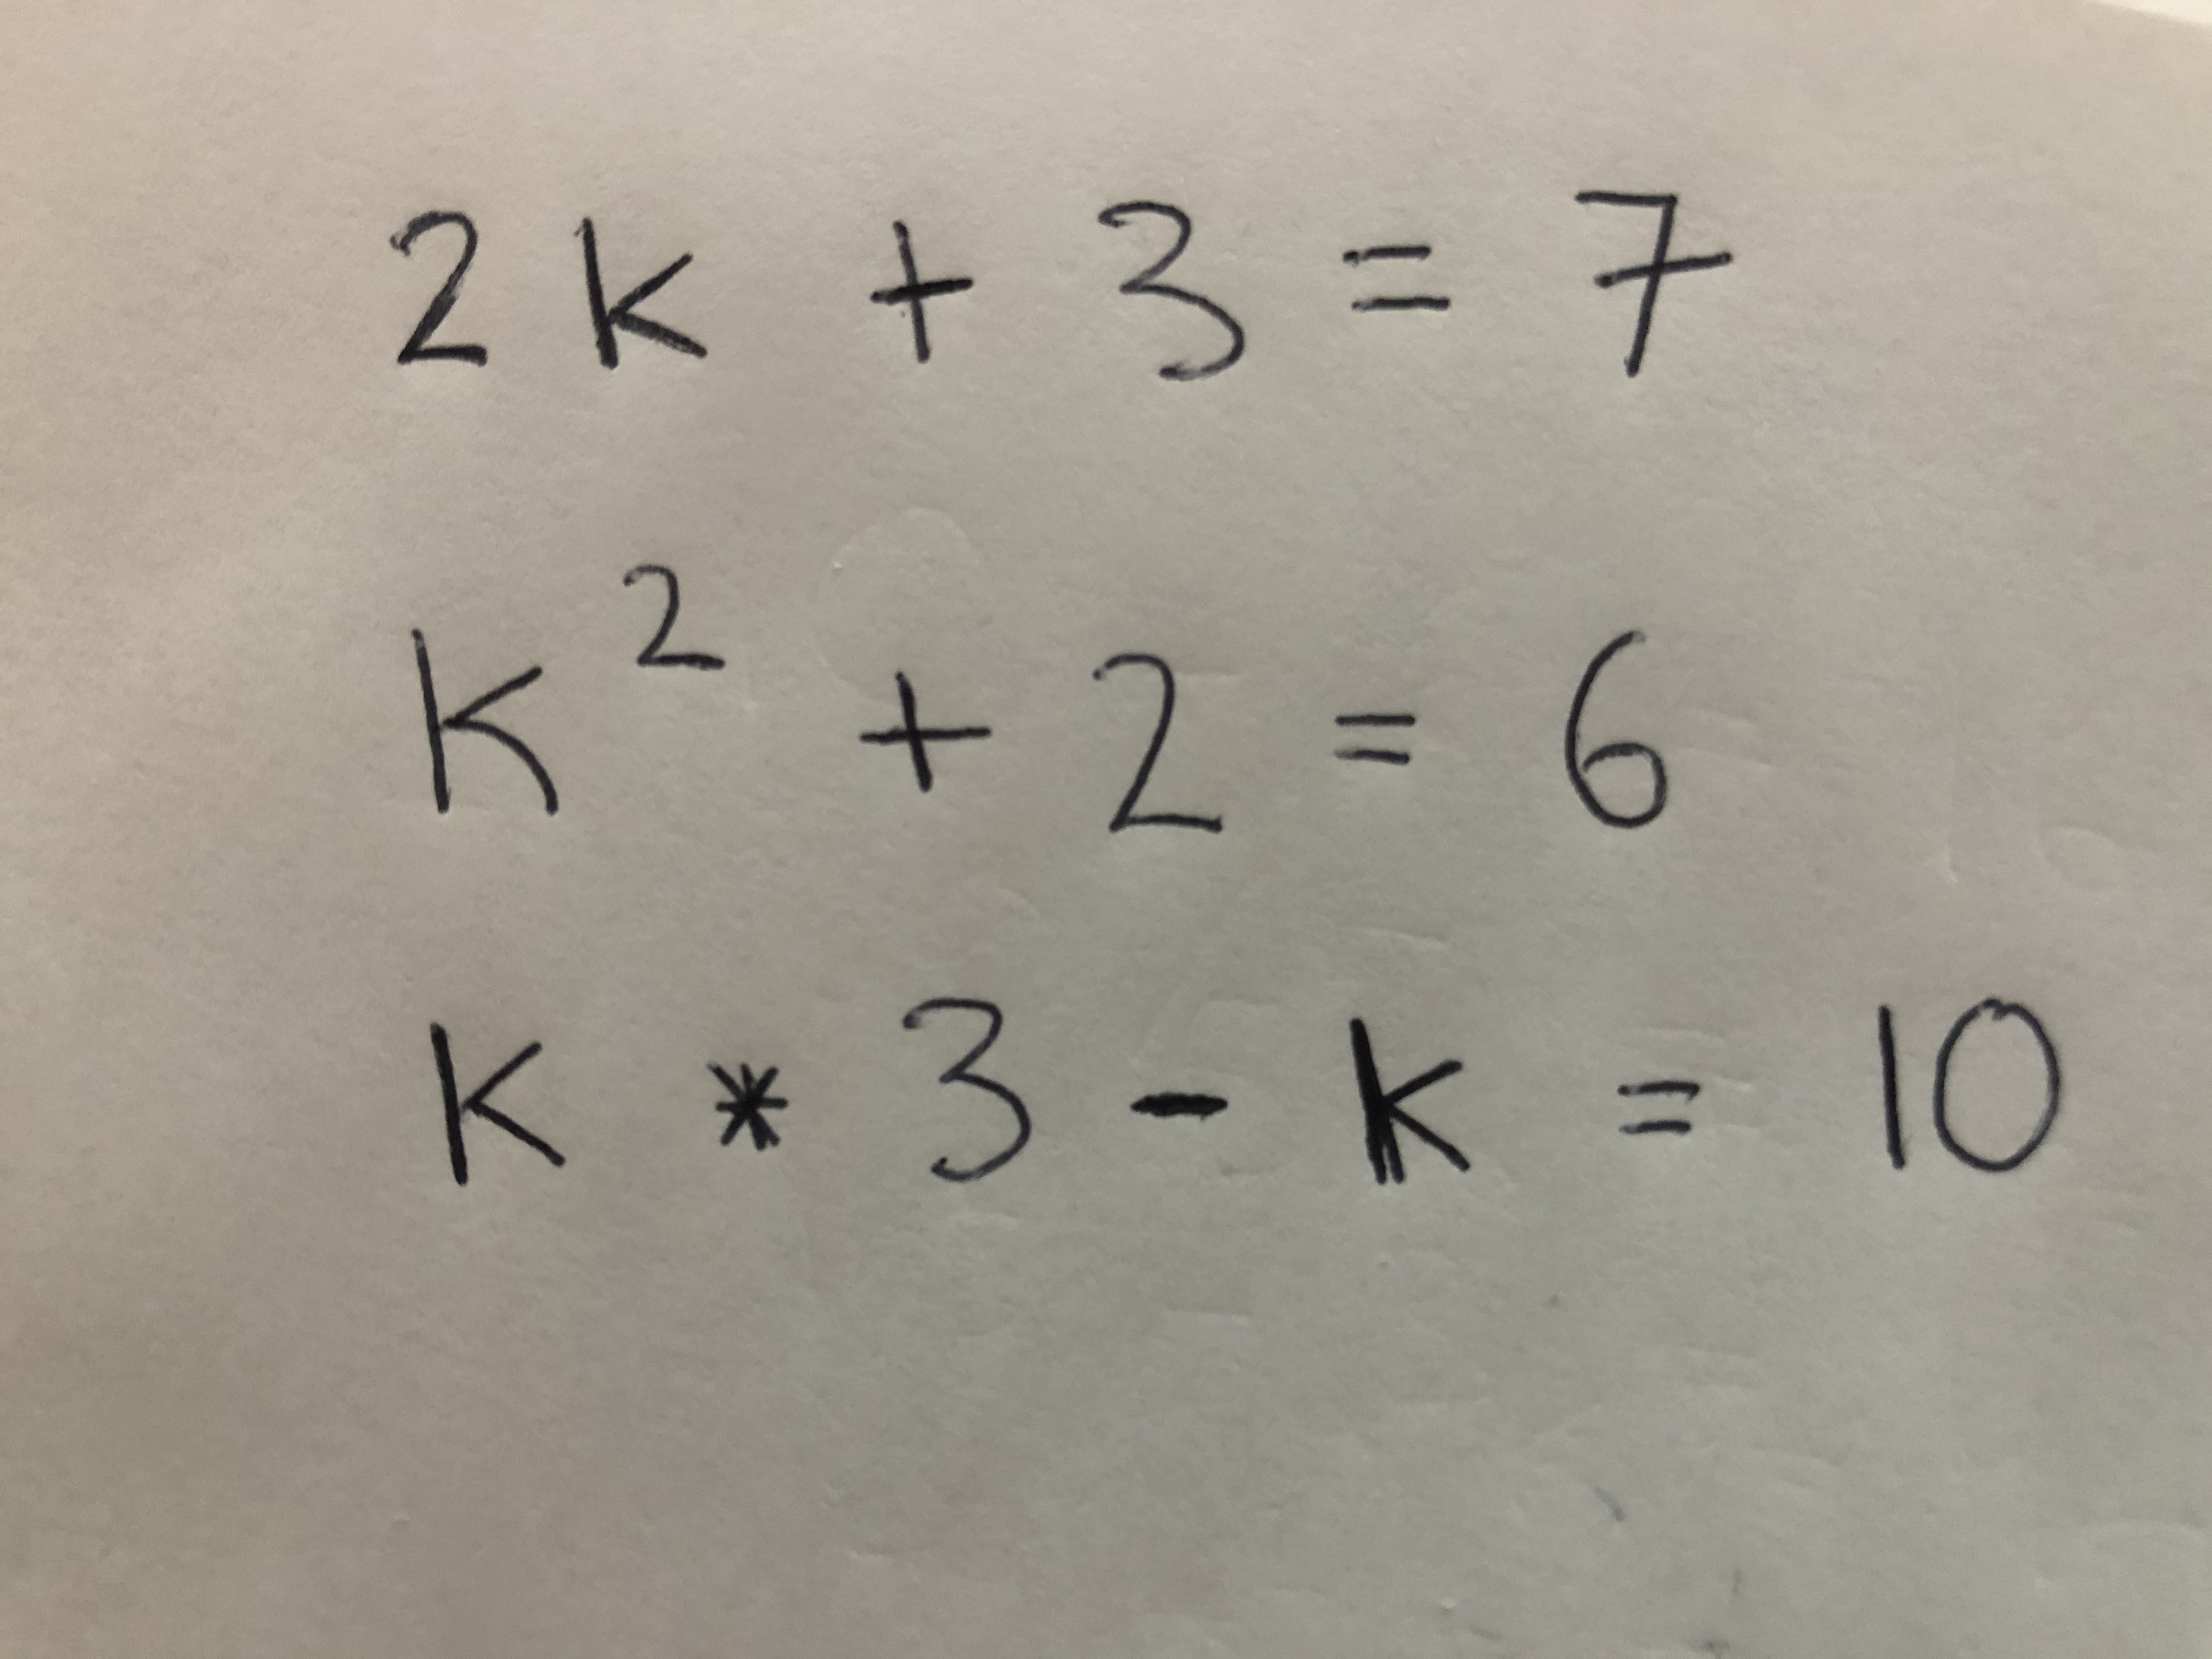 2k + 3 = 7
k² + 2 = 6
k * 3 - k = 10